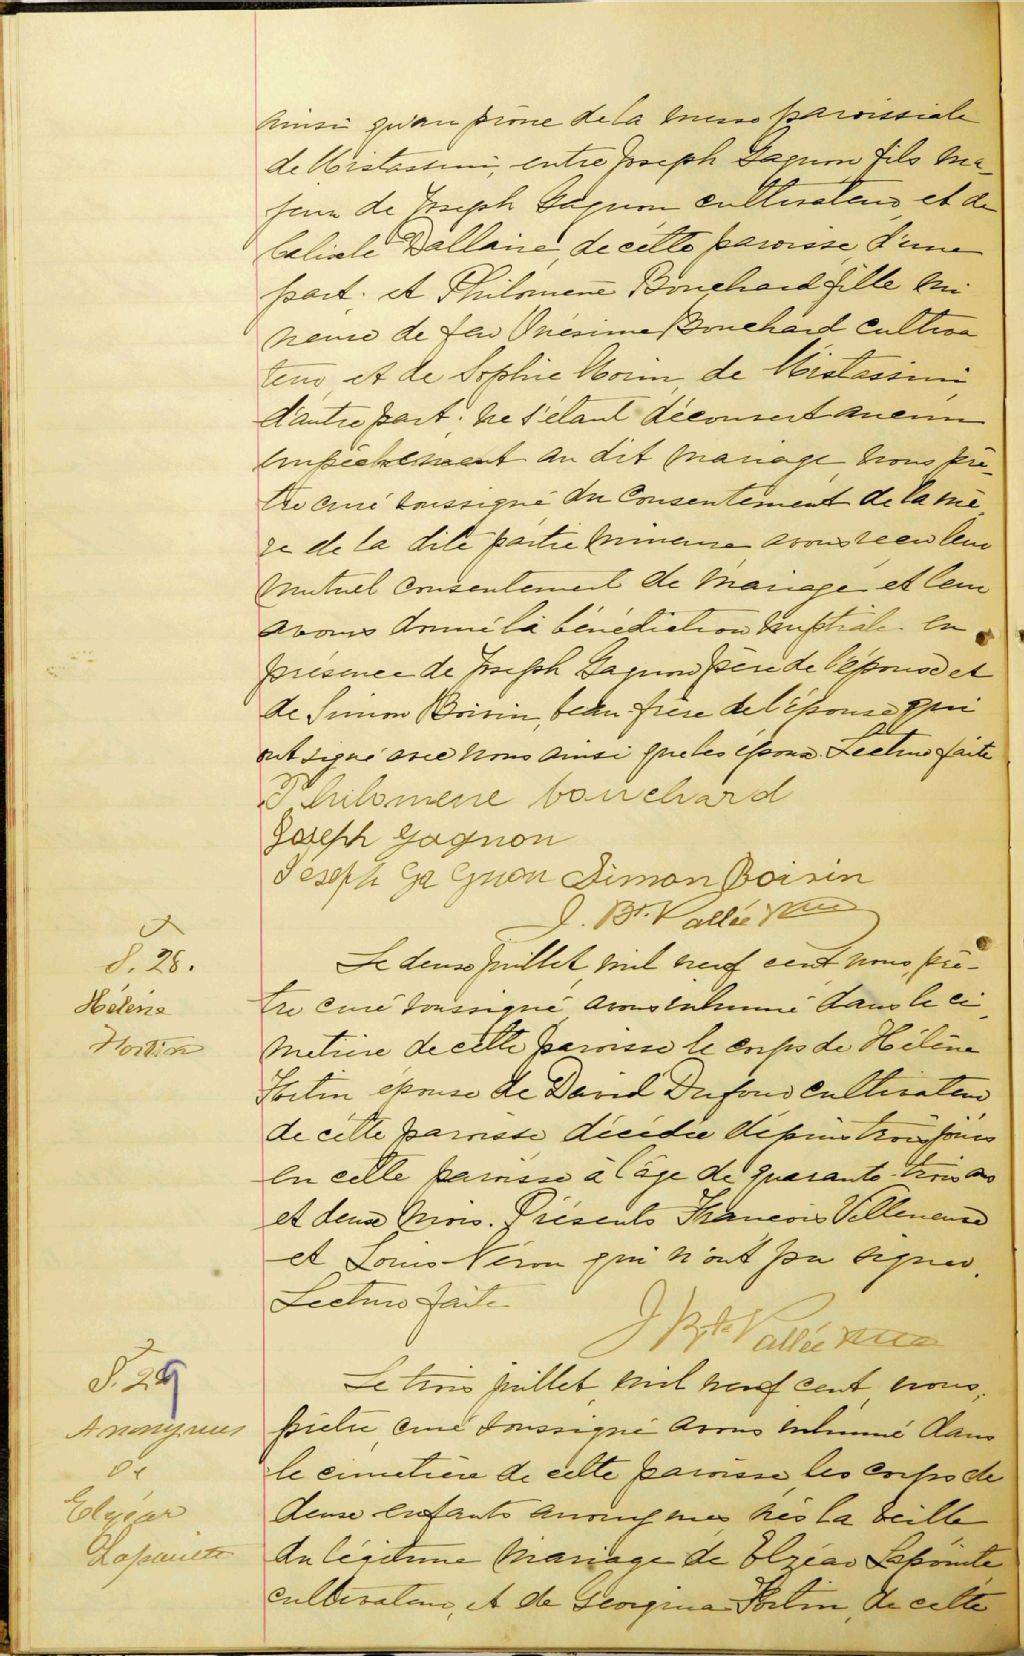 ainsi qu'au prône de la messe paroissiale
de Mistassini, entre Joseph Gagnon fils ma-
jeur de Joseph Gagnon cultivateur et de
Dallaire, de cette paroisse, d'une
part. et Philomène Bouchard fille mi
neure de feu Onésime Bouchard cultiva
teur, et de Sophie Morin, de Mistassini
d'autre part; ne s'étant découvert aucun
empêchement au dit mariage, nous prê-
tre curé soussigné du consentement de la mè
re de la dite partie mineure avons reçu leur
mutuel consentement de mariage et leur
avons donné la bénédiction nuptiale en
présence de Joseph Gagnon père de l'époux et
de Simon Boivin, beau-frère de l'épouse qui
ont signé avec nous ainsi que les époux. Lecture faite
Philomene bouchard
Joseph gagnon
Joseph Ga Gnon Simon Boivin
J. Bte Vallée Ptre
S. 28.
Hélène
Fortin
Le deux juillet, mil neuf cent, nous, prê-
tre curé soussigné, avons inhumé dans le ci
metière de cette paroisse le corps de Hélène
Fortin épouse de David Dufour cultivateur
de cette paroisse, décédée depuis trois jours
en cette paroisse à l'âge de quarante-trois ans
et deux mois. Présents François Villeneuve
et Louis Néron qui n'ont pu signer.
Lecture faite.
J Bte Vallée Ptre
S. 29
Anonymes
de
Elzéar
Lapointe
Le trois juillet, mil neuf cent, nous,
prêtre, curé soussigné avons inhumé dans
le cimetière de cette paroisse, les corps de
deux enfants anonymes nés la veille
du légitime mariage de Elzéar Lapointe
cultivateur, et de Georgina Fortin, de cette